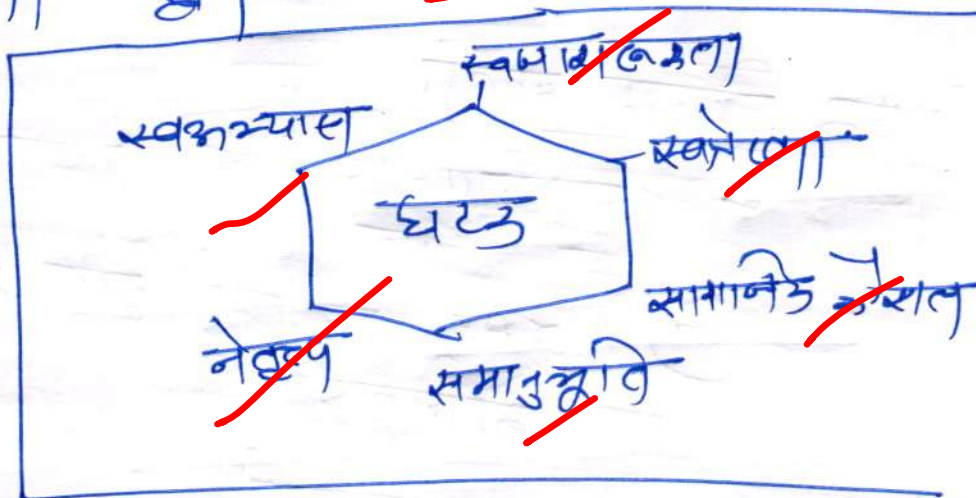 स्वजागरूकता
स्वअभ्यास
स्वप्रेरणा
घटक
सामाजिक कौशल
नेतृत्व
समानुभूति